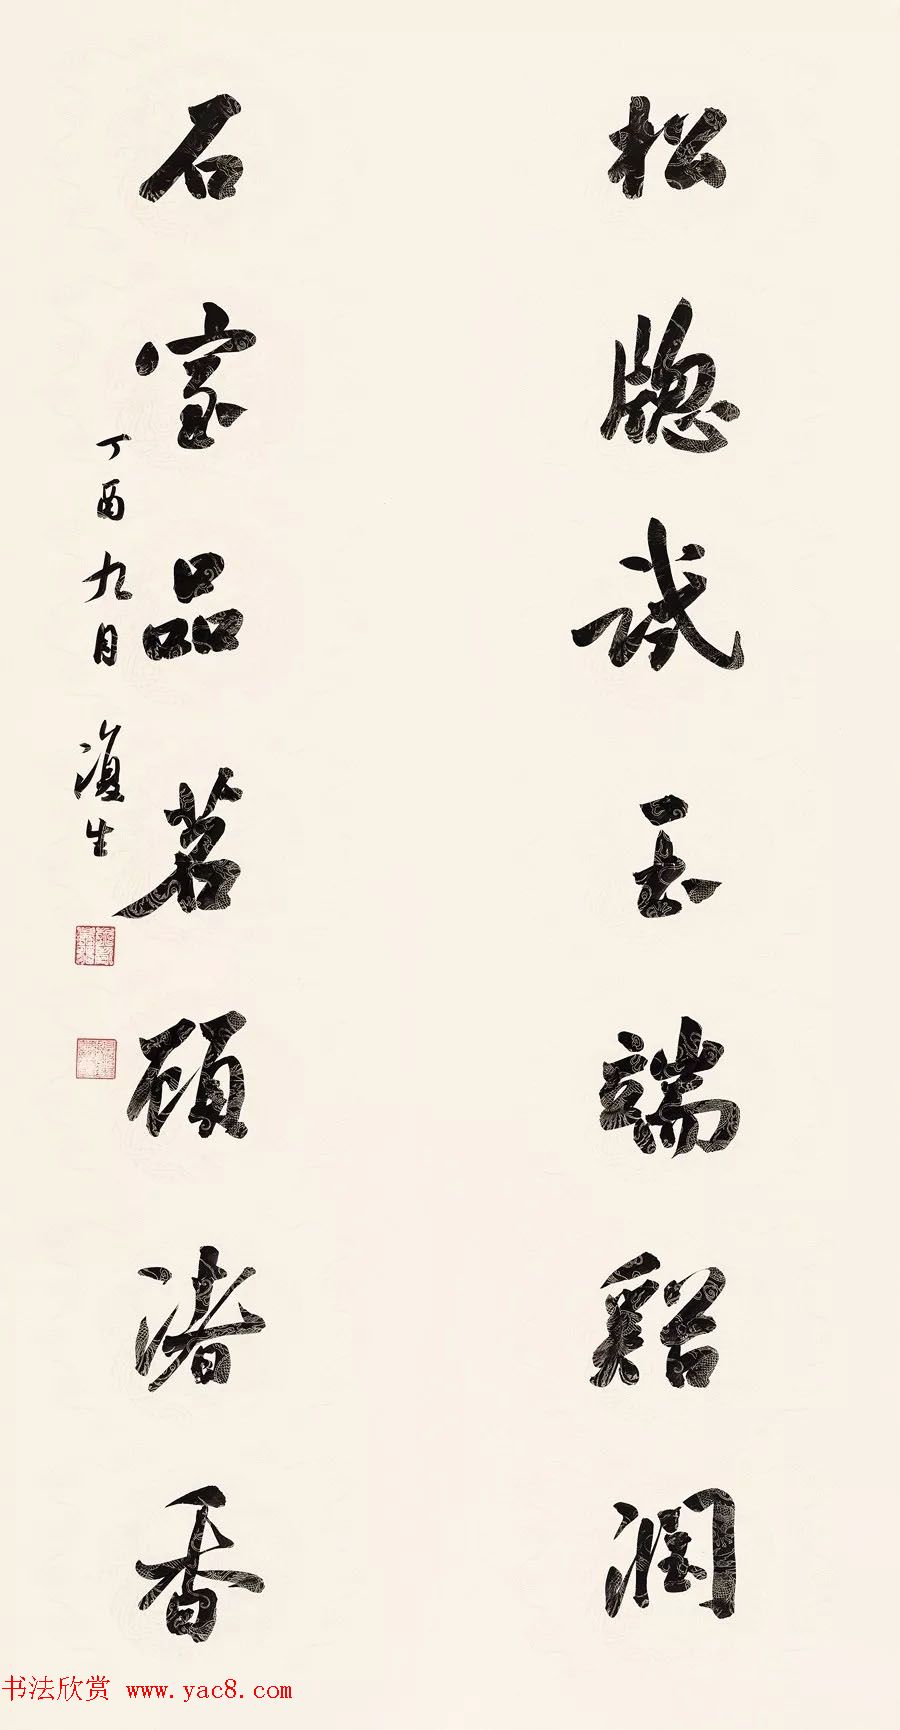 松牕试玉端谿润
石室品茗顾渚香
丁酉九月 澓生
书法欣赏 www.yac8.com